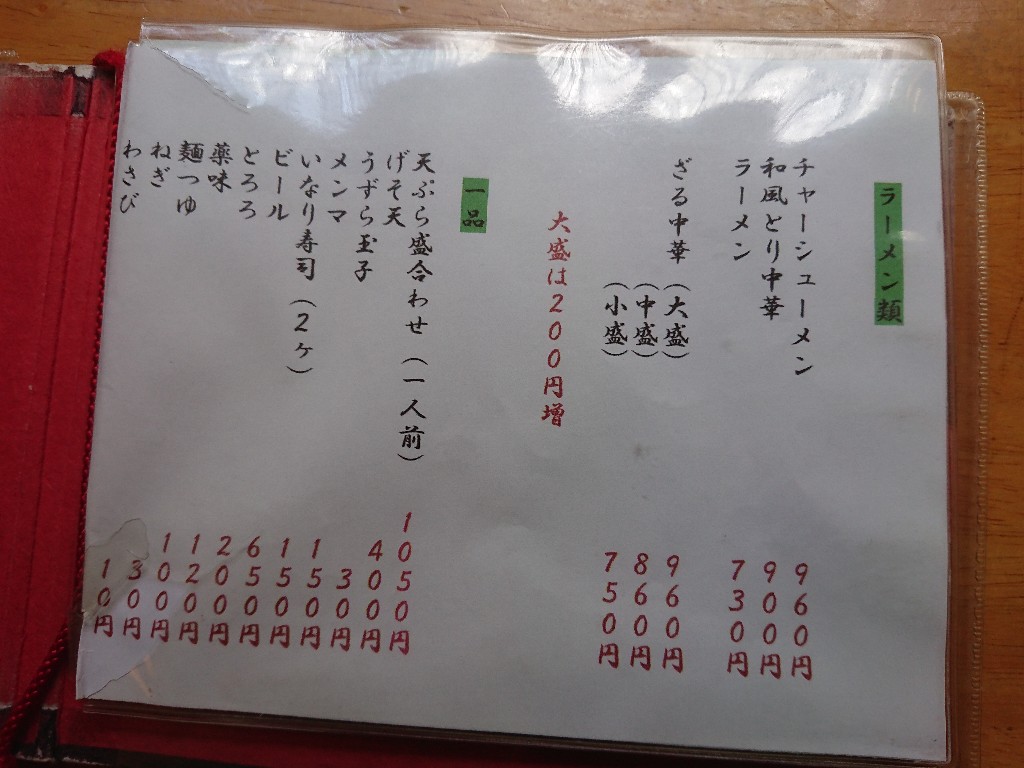 ラーメン類
チャーシューメン 960円
和風とり中華 900円
ラーメン 730円
ざる中華 (大盛) 960円
(中盛) 860円
(小盛) 750円
大盛は200円増
一品
天ぷら盛合わせ (一人前) 1050円
げそ天 400円
うずら玉子 30円
メンマ 150円
いなり寿司 (2ヶ) 150円
ビール 650円
とろろ 200円
薬味 120円
麺つゆ 100円
ねぎ 30円
わさび 10円